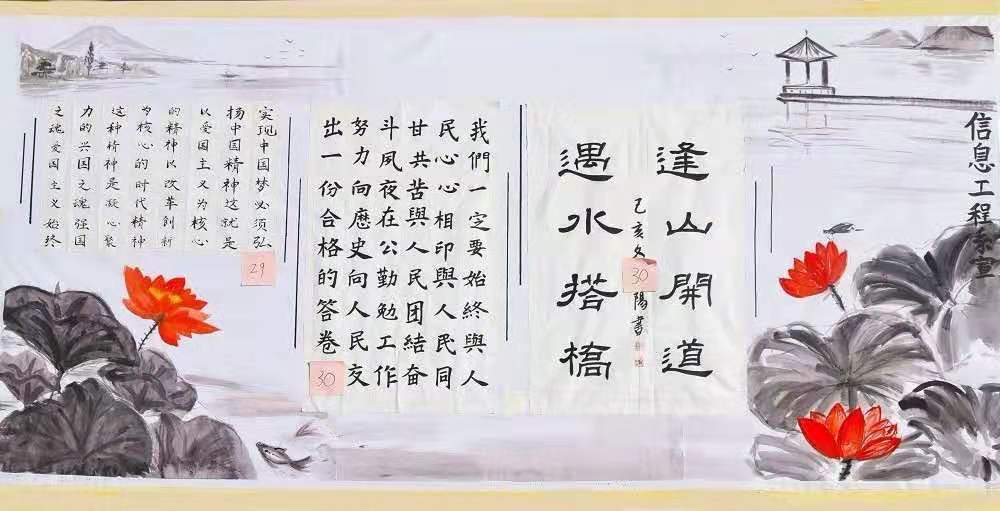 信息工程系宣
逢山開道
遇水搭橋
己亥冬
陽書
30
我們一定要始終與人
民心心相印與人民同
甘共苦與人民团結奋
斗夙夜在公勤勉工作
努力向歷史向人民交
出一份合格的答卷
30
实现中国梦必须弘
扬中国精神这就是
以爱国主义为核心
的精神以改革創新
为核心的时代精神
这种精神是凝心聚
力的兴国之魂强国
之魂爱国主义始终
29